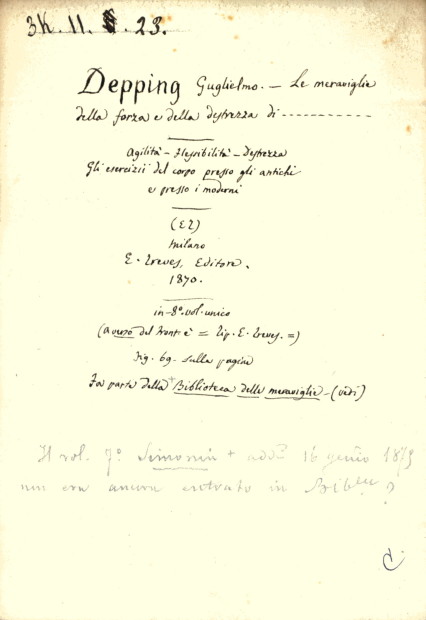 3K. 11. 8. 23.
Depping Guglielmo. — Le meraviglie
della forza e della destrezza di -----------
Agilità – Flessibilità – Destrezza
Gli esercizii del corpo presso gli antichi
e presso i moderni
Milano
E. Treves, Editore.
1870.
in-8°. vol. unico
(a verso del front. è = Tip. E. Treves. =)
Fig. 69. sulla pagina
Fa parte della Biblioteca delle meraviglie - (vedi)
Il vol. 7° Simonin + 16 1879
non era ancora entrato in